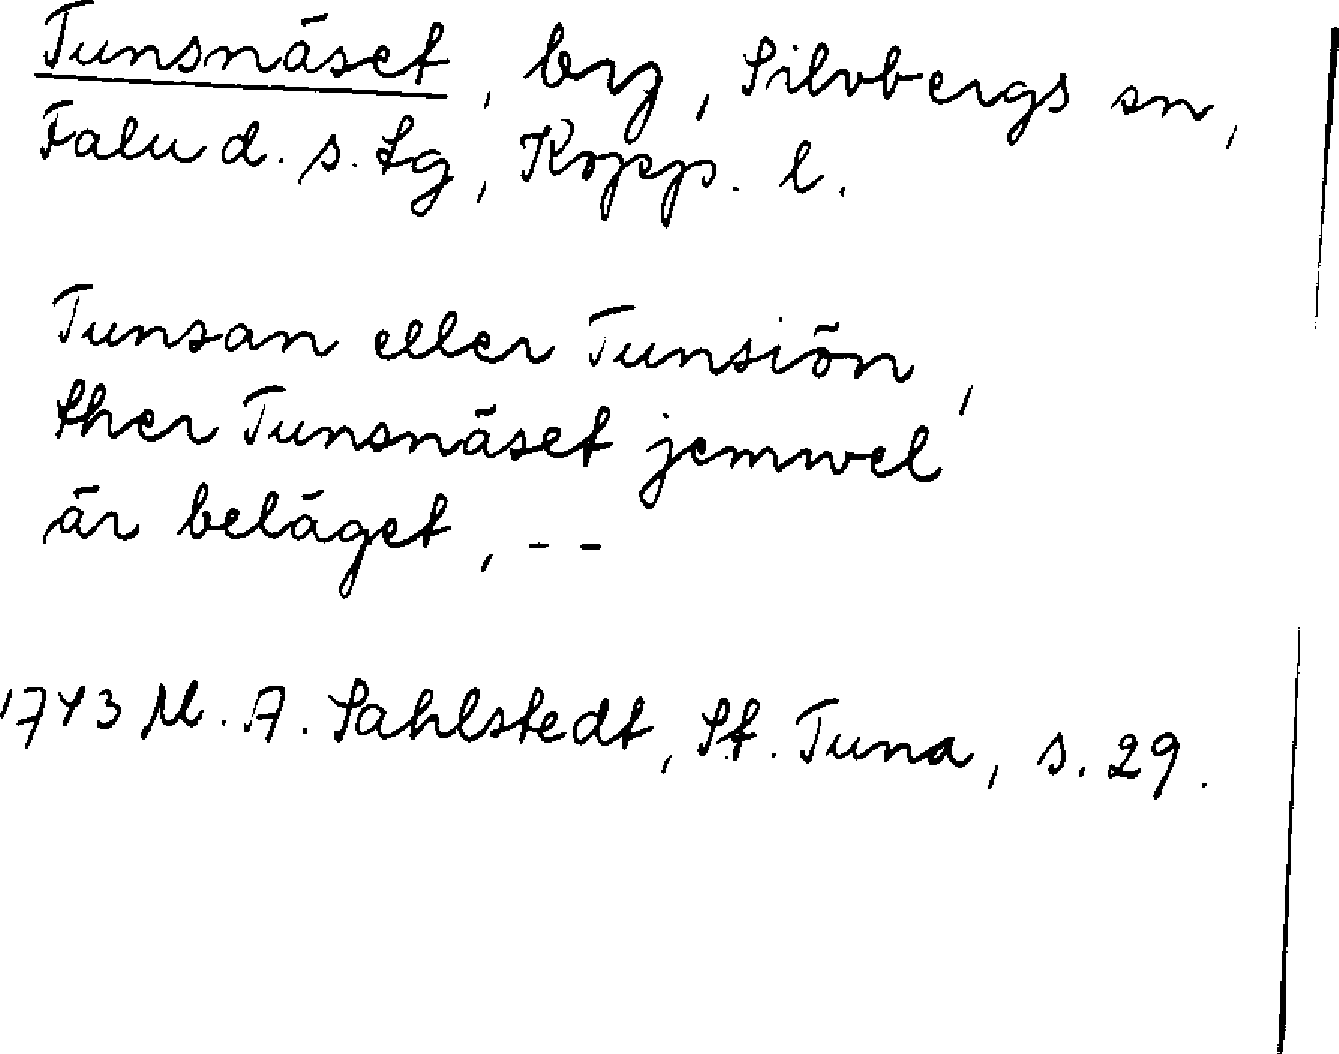 Tunsnäset, by, Silvbergs sn,
Falu d. s. tg, Kopp. l.
Tunsan eller Tunsiön,
ther Tunsnäset jemwel
är beläget, - -
1743 M. A. Sahlstedt, St. Tuna, s. 29.